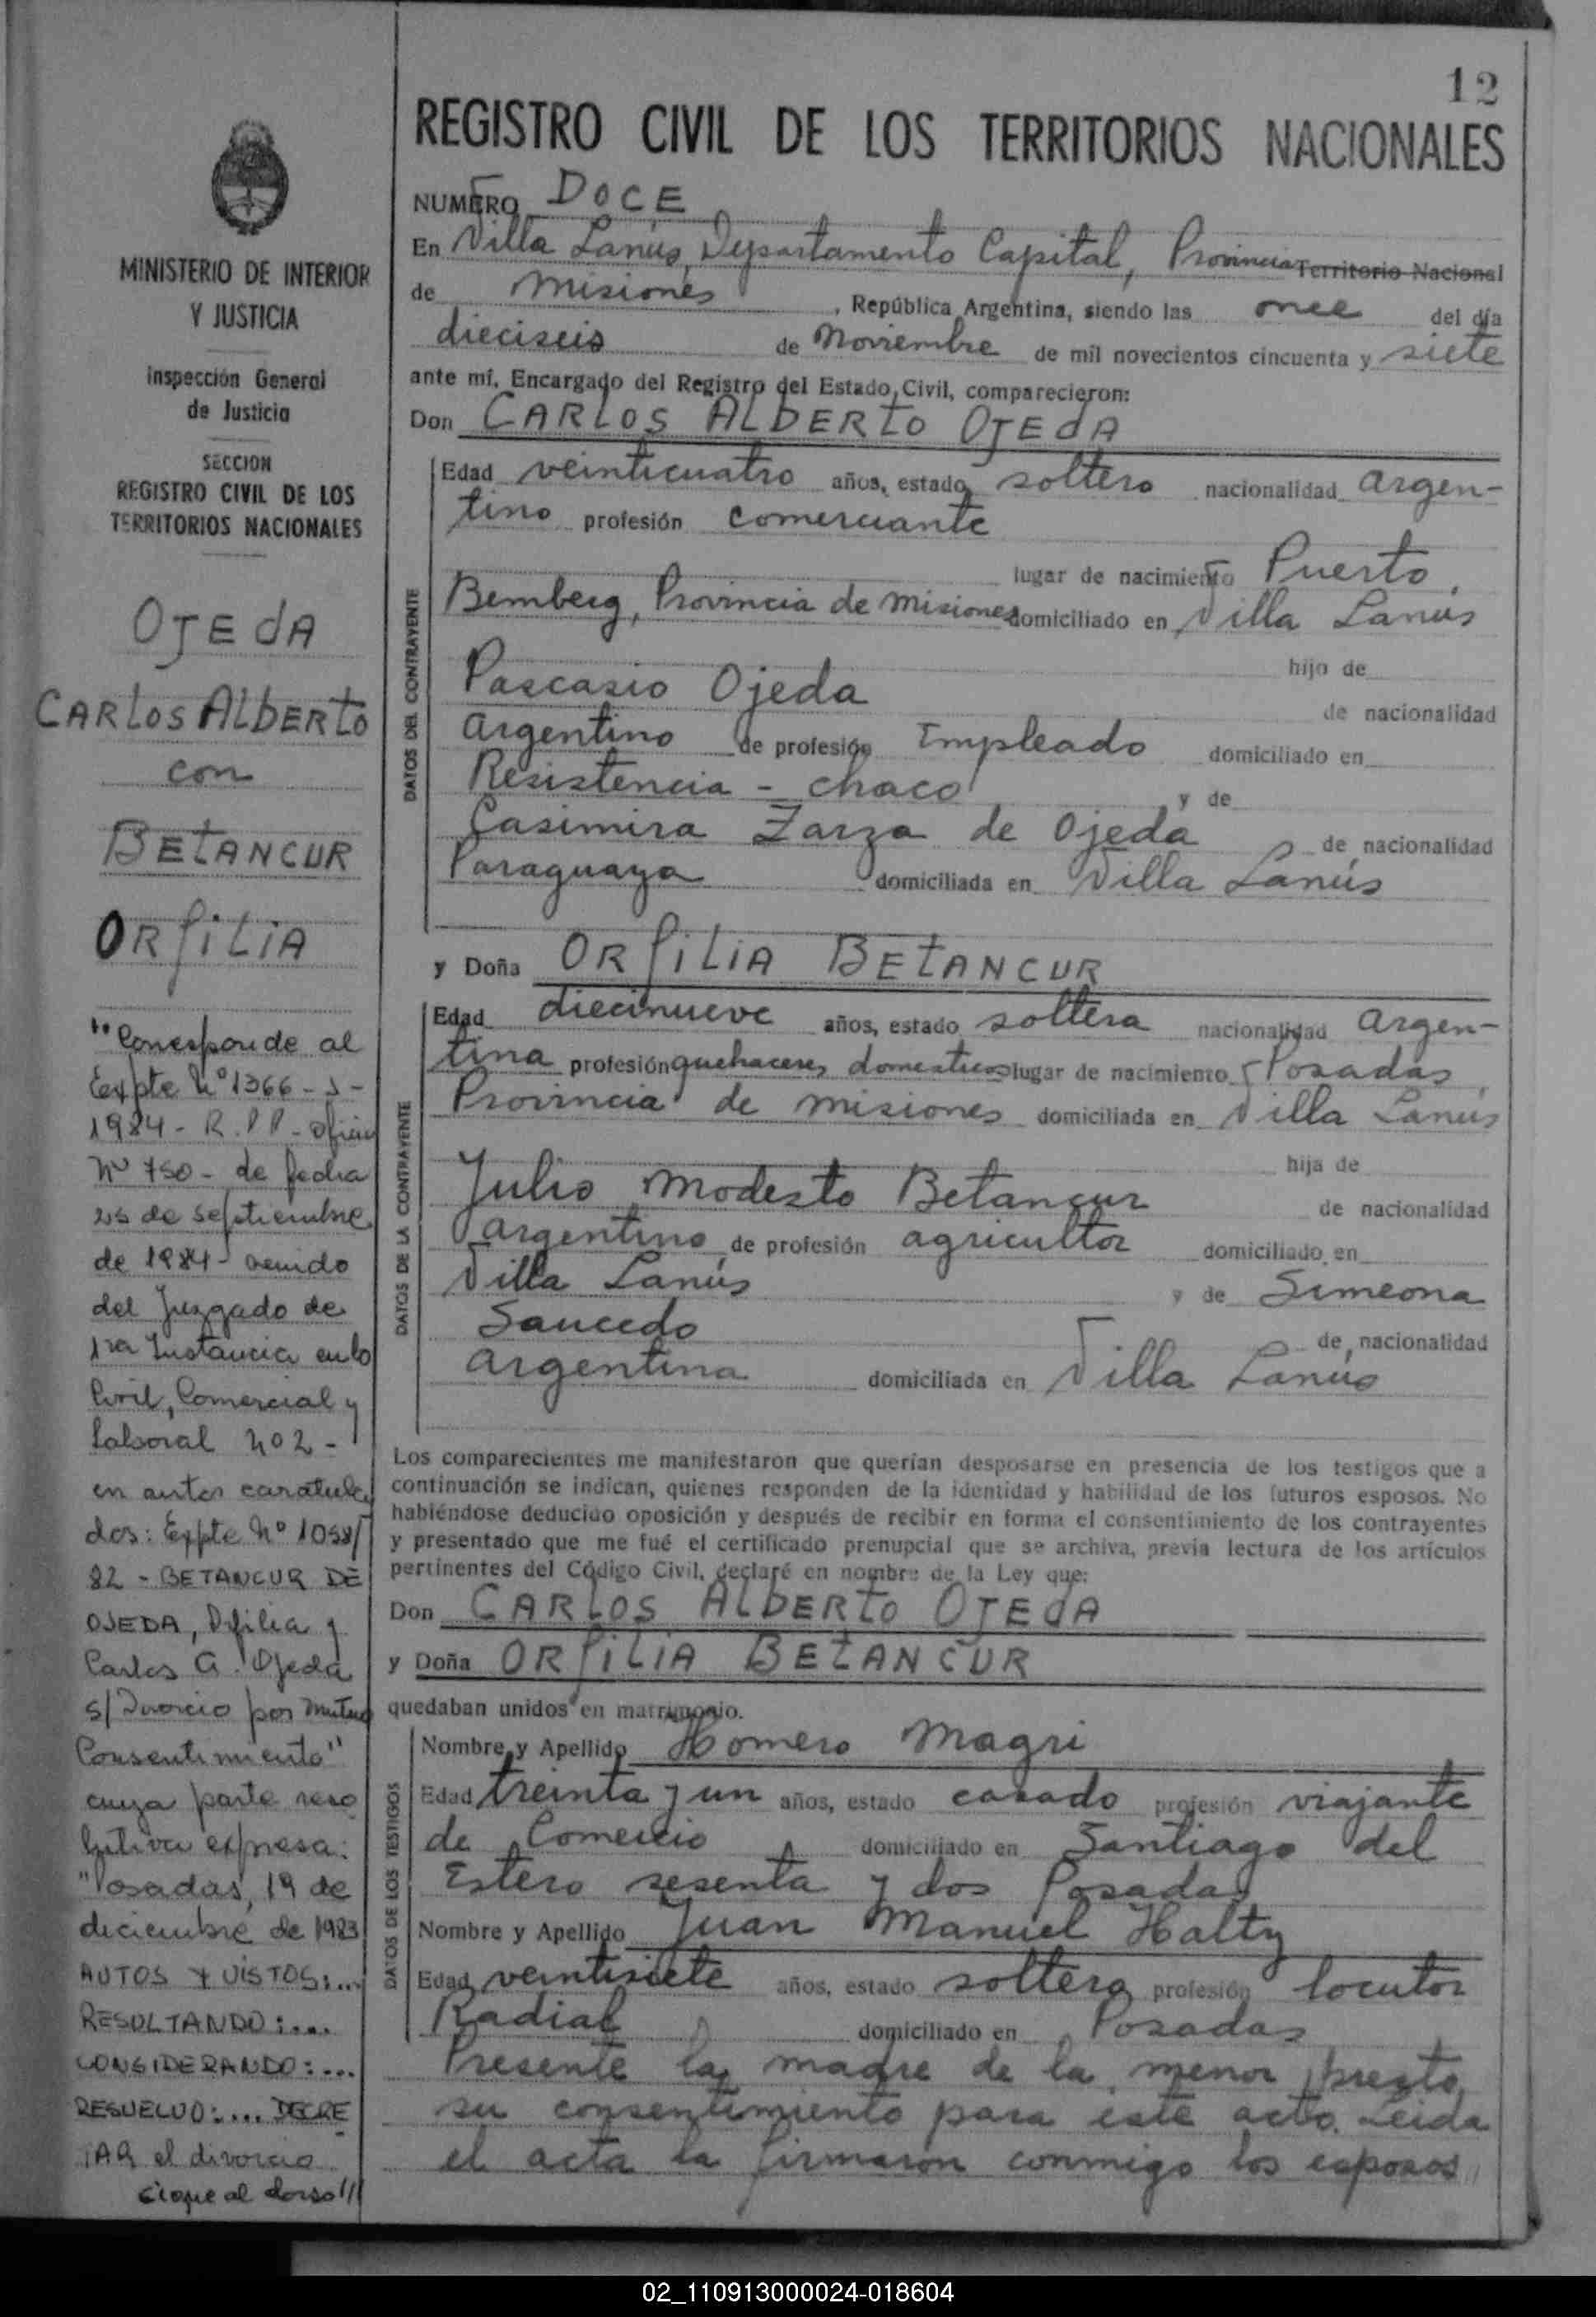 12
REGISTRO CIVIL DE LOS TERRITORIOS NACIONALES
MINISTERIO DE INTERIOR
Y JUSTICIA
Inspección General
de Justicia
SECCION
REGISTRO CIVIL DE LOS
TERRITORIOS NACIONALES
OJEdA
CARLOS ALBERTO
con
BETANCUR
ORfiLiA
"Corresponde al
Expte Nº 1366-S-
1984- R.P.P- Oficio
Nº 750- de fecha
26 de septiembre
de 1984- venido
del Juzgado de
1ra Instancia en lo
Civil, Comercial y
Laboral Nº 2-
en autos caratula
dos: Expte Nº 1058/
82 - BETANCUR DE
OJEDA, Orfilia y
Carlos A. Ojeda
s/ Divorcio por Mutuo
Consentimiento"
cuya parte reso
lutiva expresa:
"Posadas, 19 de
diciembre de 1983
AUTOS Y VISTOS:...
RESULTANDO:...
CONSIDERANDO:...
RESUELVO:... DECRE
TAR el divorcio
sigue al dorso///
NUMERO DOCE
En Villa Lanús, Departamento Capital, Provincia Territorio Nacional
de Misiones, República Argentina, siendo las once del día
dieciseis de Noviembre de mil novecientos cincuenta y siete
ante mí, Encargado del Registro del Estado Civil, comparecieron:
Don CARLOS ALBERTO OJEdA
DATOS DEL CONTRAYENTE
Edad veinticuatro años, estado soltero nacionalidad argen-
tino profesión comerciante
lugar de nacimiento Puerto
Bemberg, Provincia de Misiones domiciliado en Villa Lanús
hijo de
Pascasio Ojeda de nacionalidad
argentino de profesión Empleado domiciliado en
Resistencia - chaco y de
Casimira Zarza de Ojeda de nacionalidad
Paraguaya domiciliada en Villa Lanús
y Doña ORfiLiA BETANCUR
DATOS DE LA CONTRAYENTE
Edad diecinueve años, estado soltera nacionalidad argen-
tina profesión quehaceres domesticos lugar de nacimiento Posadas
Provincia de Misiones domiciliada en Villa Lanús
hija de
Julio Modesto Betancur de nacionalidad
argentino de profesión agricultor domiciliado en
Villa Lanús y de Simeona
Saucedo de nacionalidad
argentina domiciliada en Villa Lanús
Los comparecientes me manifestaron que querían desposarse en presencia de los testigos que a
continuación se indican, quienes responden de la identidad y habilidad de los futuros esposos. No
habiéndose deducido oposición y después de recibir en forma el consentimiento de los contrayentes
y presentado que me fué el certificado prenupcial que se archiva, previa lectura de los artículos
pertinentes del Código Civil, declaré en nombre de la Ley que:
Don CARLOS ALBERTO OJEdA
y Doña ORfiLiA BETANCUR
quedaban unidos en matrimonio.
DATOS DE LOS TESTIGOS
Nombre y Apellido Homero Magri
Edad treinta y un años, estado casado profesión viajante
de Comercio domiciliado en Santiago del
Estero sesenta y dos Posadas
Nombre y Apellido Juan Manuel Halty
Edad veintisiete años, estado soltero profesión locutor
Radial domiciliado en Posadas
Presente la madre de la menor presto
su consentimiento para este acto. Leida
el acta la firmaron conmigo los esposos
02_110913000024-018604